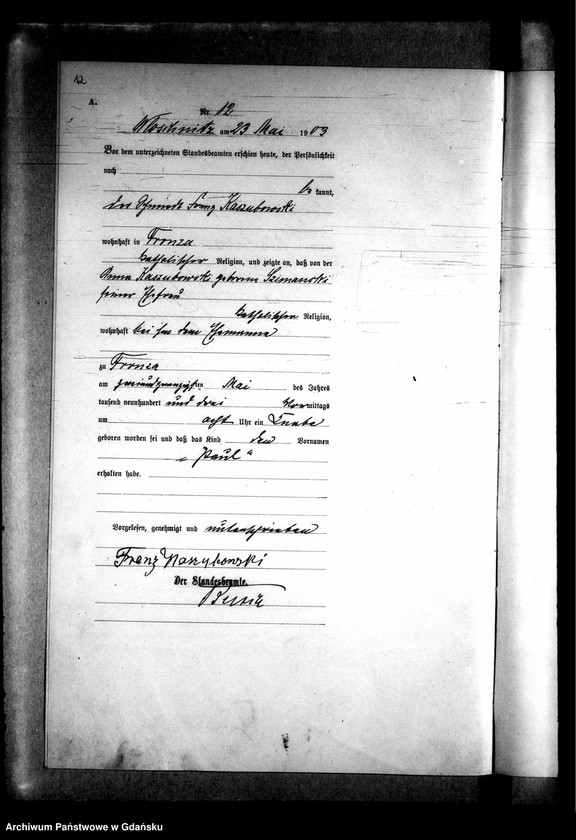 12
A.
Nr. 12
am 23 Mai 1903
Vor dem unterzeichneten Standesbeamten erschien heute, der Persönlichkeit
nach
be kannt,
der Franz Kaszubowski
wohnhaft in Fronza
katholischer Religion, und zeigte an, daß von der
Anna Kaszubowski geborenen Szimanski
seiner Ehefrau
katholischer Religion,
wohnhaft bei ihm dem Ehemanne
zu Fronza
am zweiundzwanzigsten Mai des Jahres
tausend neunhundert und drei Vormittags
um acht Uhr ein Knabe
geboren worden sei und daß das Kind den Vornamen
„Paul“
erhalten habe.
Vorgelesen, genehmigt und unterschrieben
Franz Kaszubowski
Der Standesbeamte.
Archiwum Państwowe w Gdańsku